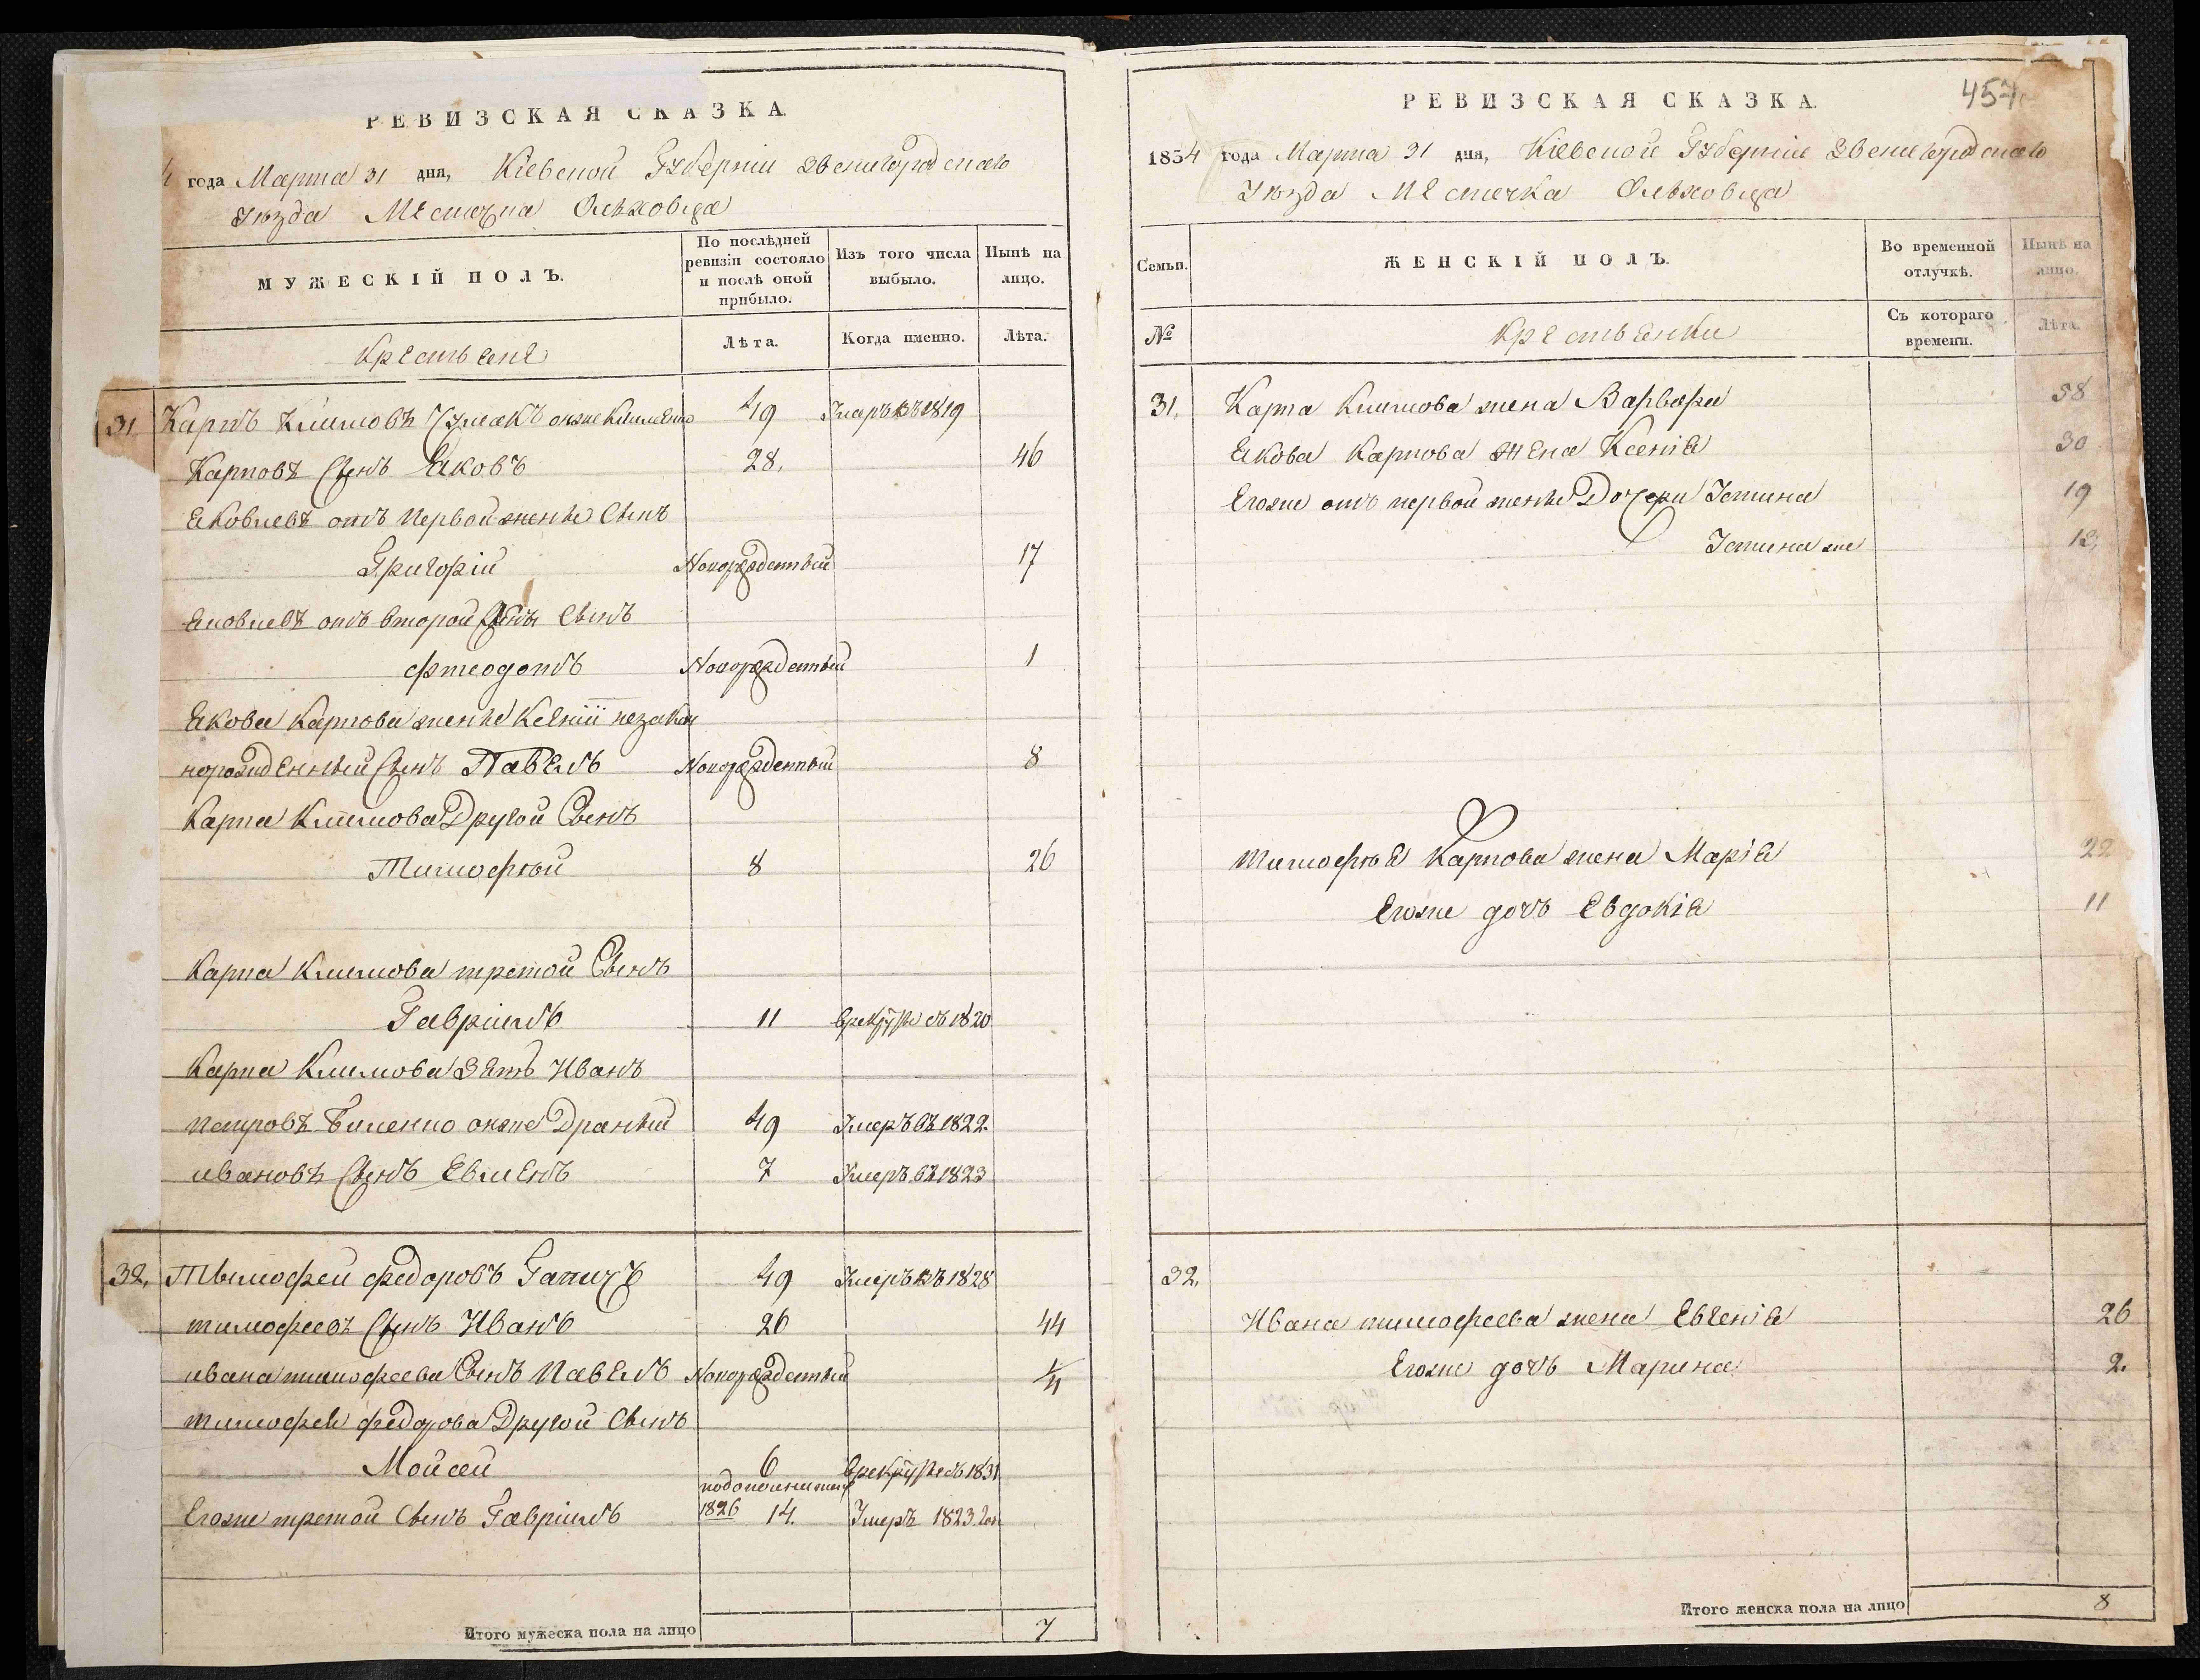 РЕВИЗСКАЯ СКАЗКА
года Марта 31 дня, Кіевской Губерніи Звенигородскаго
Уѣзда Местечка Ольховца
МУЖЕСКІЙ ПОЛЪ.
По послѣдней ревизіи состояло и послѣ оной прибыло.
Изъ того числа выбыло.
Нынѣ на лицо.
Крестьене
Лѣта.
Когда именно.
Лѣта.
31 Карпъ Климовъ Чумакъ онже Клименко 49 Умеръ въ 1819
Карповъ Сынъ Еаковъ 28. 46
Еаковлевъ отъ Первой жены Сынъ
Григорій Новорожденный 17
Еаковлевъ отъ второй жены Сынъ
Фтеодотъ Новорожденный 1
Еакова Карпова жены Ксеніи незакон
норожденный Сынъ Павелъ Новорожденный 8
Карпа Климова Другой Сынъ
Тимофѣй 8 26
Карпа Климова третой Сынъ
Гавріилъ 11 врекруты въ 1820
Карпа Климова Зеть Иванъ
Петровъ онже Драный 49 Умеръ въ 1822.
Ивановъ Сынъ Евменъ 7 Умеръ въ 1823
32. Тымофеи Федоровъ Гапичъ 49 Умеръ въ 1828
тимофеевъ Сынъ Иванъ 26 44
Ивана тимофеева Сынъ Павелъ Новорожденный 1/11
тимофеи Федорова Другой Сынъ
Мойсей 6 врекруты въ 1831
Егоже третой Сынъ Гавріилъ 1826 14. Умеръ 1823 год
Итого мужеска пола на лицо 7
457
РЕВИЗСКАЯ СКАЗКА.
1854 года Марта 31 дня, Кіевской Губерніи Звенигородскаго
Уѣзда Местечка Ольховца
Семьи.
ЖЕНСКІЙ ПОЛЪ.
Во временной отлучкѣ.
Нынѣ на лицо.
№
Крестьенки
Съ котораго времени.
Лѣта.
31. Карпа Климова жена Варвара 58
Еакова Карпова жена Ксеніа 30
Егоже отъ первой жены Дочери Устина 19
Устина же 12,
тимофѣа Карпова жена Маріа 22
Егоже дочъ Евдокіа 11
32.
Ивана тимофеева жена Евгеніа 26
Егоже дочъ Марина 2.
Итого женска пола на лицо 8